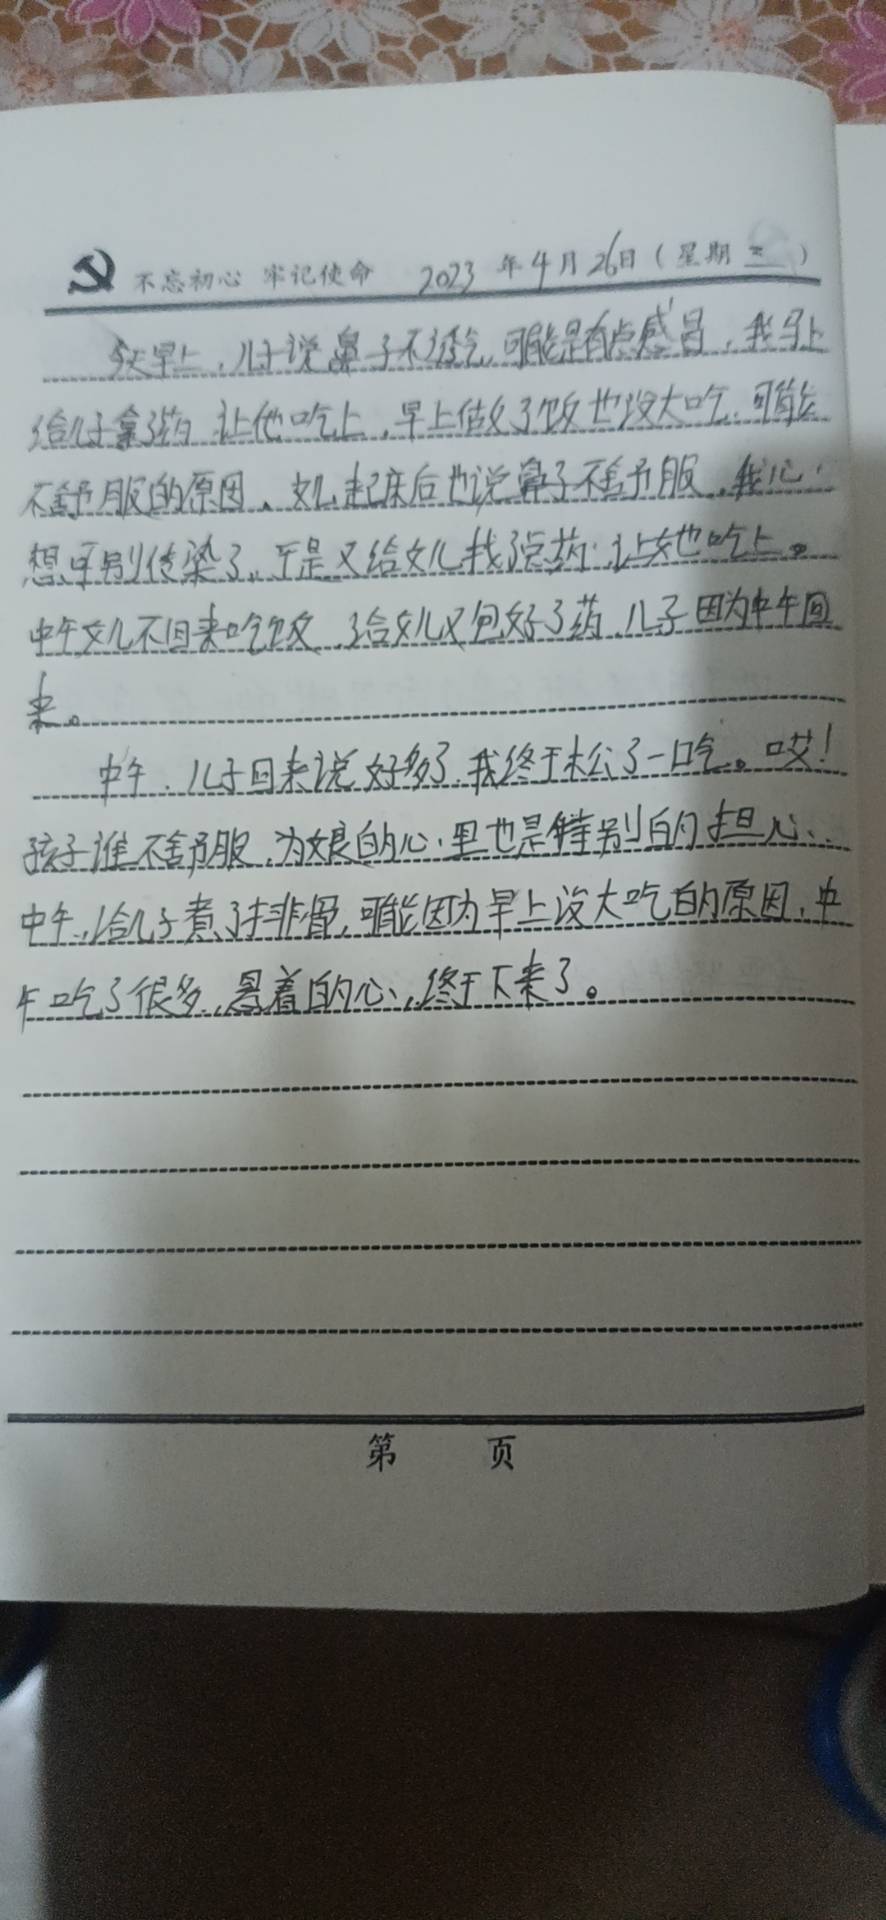 不忘初心 牢记使命 2023 年 4 月 26日（星期 三 ）
今天早上，儿子说鼻子不透气，可能是有点感冒，我马上
给儿子拿药 让他吃上，早上做好了饭也没大吃，可能
不舒服的原因、女儿起床后也说鼻子不舒服，我心
想可别传染了。于是又给女儿找了点药，让她吃上。
中午女儿不回来吃饭，给女儿又包好了药，儿子因为中午回
来。
中午，儿子回来说好多了，我终于松了一口气。哎！
孩子谁不舒服，为娘的心里也是特别的担心、
中午，给儿子煮了排骨，可能因为早上没大吃的原因，中
午吃了很多，悬着的心，终于下来了。
第 页